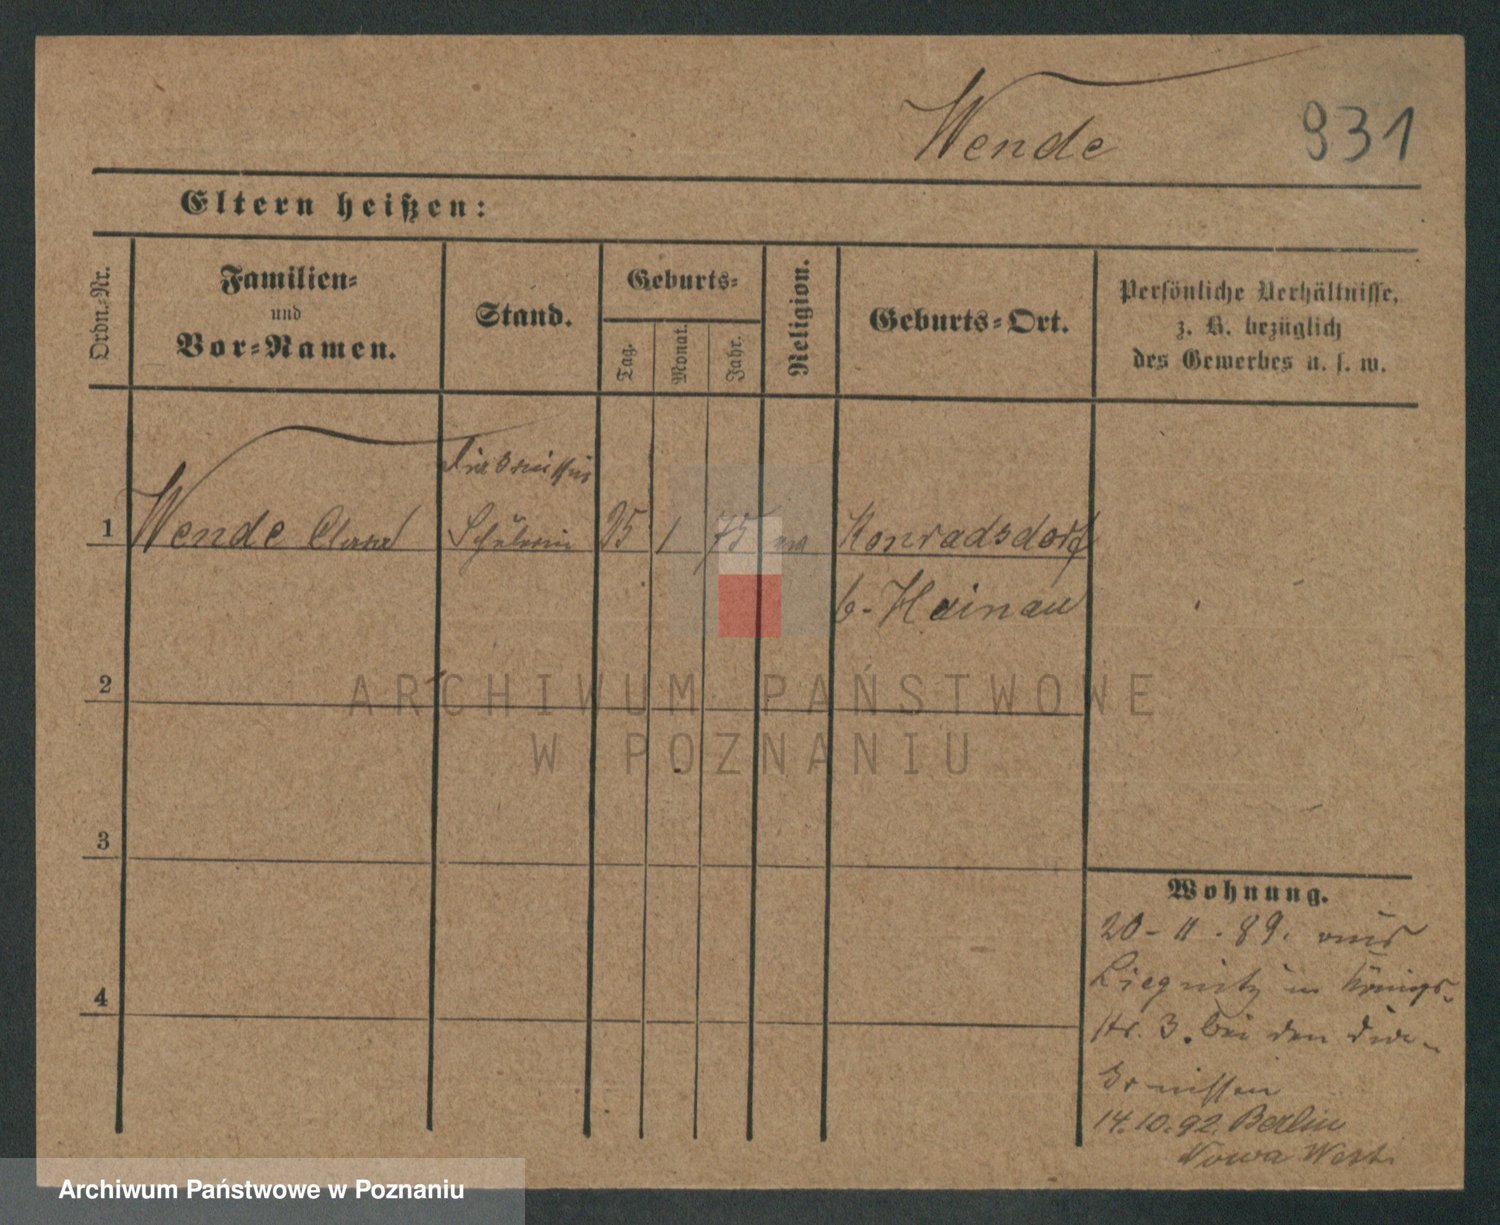 Wende 931
Eltern heißen:
Ordn.-Nr.
Familien-
und
Vor-Namen.
Stand.
Geburts-
Tag.
Monat.
Jahr.
Religion.
Geburts-Ort.
Persönliche Verhältnisse,
z. B. bezüglich
des Gewerbes u. s. w.
Diakonissin
1 Wende Clara Schülerin 25 1 75 ev Konradsdorf
b- Hainau
2
3
4
Wohnung.
20-11.89. aus
Liegnitz in Königs-
str. 3. bei den Dia-
konissen
14.10.92. Berlin
Nowa West.
ARCHIWUM PAŃSTWOWE
W POZNANIU
Archiwum Państwowe w Poznaniu